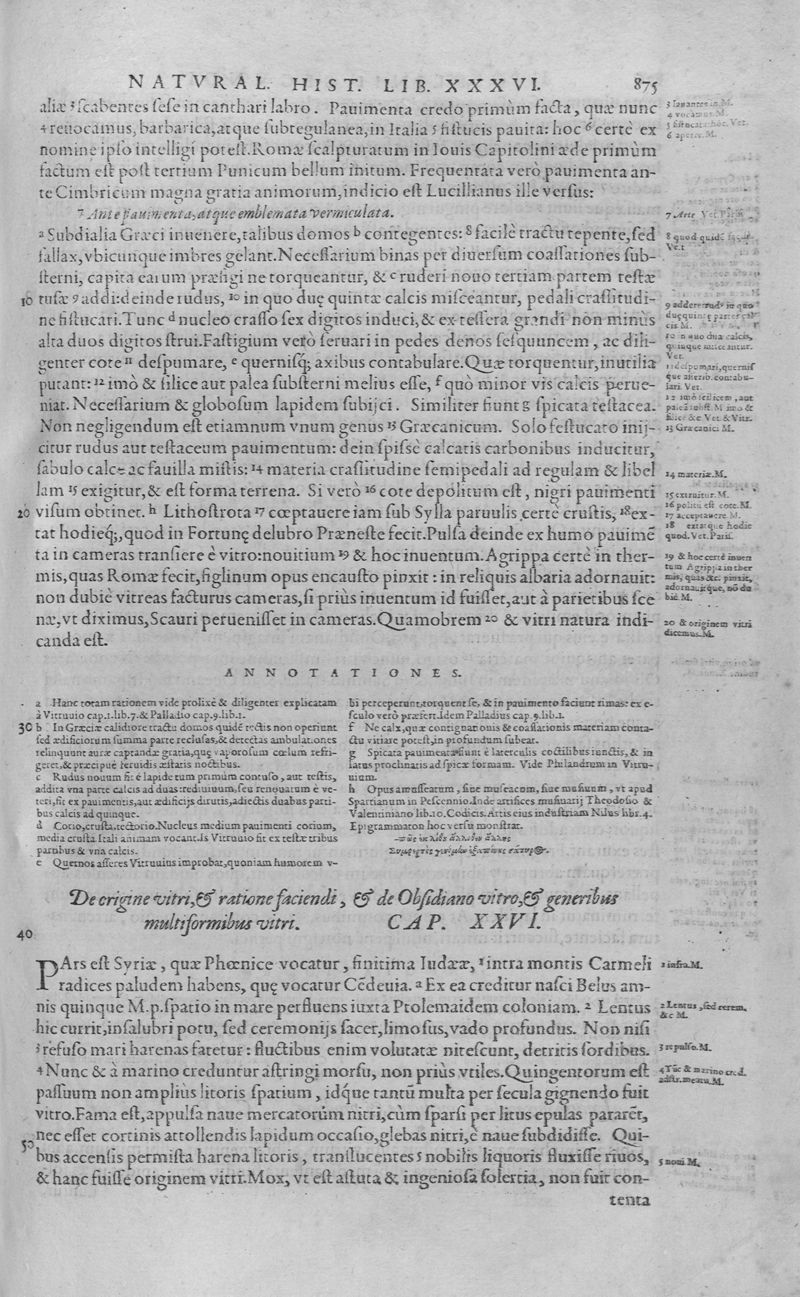 NATVRAL. HIST. LIB. XXXVI. 875
aliæ ³ ſcabentes ſeſe in canthari labro. Pauimenta credo primùm facta, quæ nunc
⁴ reuocamus, barbarica, atque ſubtegulanea, in Italia ⁵ fiſtucis pauita: hoc ⁶ certè ex
nomine ipſo intelligi poteſt. Romæ ſcalpturatum in Iouis Capitolini æde primùm
factum eſt poſt tertium Punicum bellum initum. Frequentata verò pauimenta an-
te Cimbricum magna gratia animorum, indicio eſt Lucillianus ille verſus:
⁷ Ante pauimenta, atque emblemata vermiculata.
ª Subdialia Græci inuenere, talibus domos ᵇ contegentes: ⁸ facilè tractu tepente, ſed
fallax, vbicunque imbres gelant. Neceſſarium binas per diuerſum coaſſationes ſub-
ſterni, capita earum præfigi ne torqueantur, & ᶜ ruderi nouo tertiam partem teſtæ
10 tuſæ ⁹ addi: deinde rudus, ¹⁰ in quo duę quintæ calcis miſceantur, pedali craſſitudi-
ne fiſtucari. Tunc ᵈ nucleo craſſo ſex digitos induci, & ex teſſera grandi non minùs
alta duos digitos ſtrui. Faſtigium verò ſeruari in pedes denos ſeſquuncem, ac dili-
genter cote ¹¹ deſpumare, ᵉ querniſq; axibus contabulare. Quæ torquentur, inutilia
putant: ¹² imò & filice aut palea ſubſterni melius eſſe, ᶠ quò minor vis calcis perue-
niat. Neceſſarium & globoſum lapidem ſubijci. Similiter fiunt ᵍ ſpicata teſtacea.
Non negligendum eſt etiamnum vnum genus ¹³ Græcanicum. Solo feſtucato inij-
citur rudus aut teſtaceum pauimentum: dein ſpiſsè calcatis carbonibus inducitur,
ſabulo calce ac fauilla miſtis: ¹⁴ materia craſſitudine ſemipedali ad regulam & libel
lam ¹⁵ exigitur, & eſt forma terrena. Si verò ¹⁶ cote depolitum eſt, nigri pauimenti
20 viſum obtinet. ʰ Lithoſtrota ¹⁷ cœptauere iam ſub Sylla paruulis certè cruſtis, ¹⁸ ex-
tat hodieq;, quod in Fortunę delubro Præneſte fecit. Pulſa deinde ex humo pauimẽ
ta in cameras tranſiere è vitro: nouitium ¹⁹ & hoc inuentum. Agrippa certè in ther-
mis, quas Romæ fecit, figlinum opus encauſto pinxit: in reliquis albaria adornauit:
non dubiè vitreas facturus cameras, ſi priùs inuentum id fuiſſet, aut à parietibus ſce
næ, vt diximus, Scauri perueniſſet in cameras. Quamobrem ²⁰ & vitri natura indi-
canda eſt.
3 lauantes in M.
4 vocamus M.
6 aperte M.
7 Ante Vet. Pariſ.
Vet.
9 addere
cis M.
10 in quo dua calcis,
Vet.
13 Græcanici M.
14 materiæ.M.
15 extruitur. M.
16 politũ eſt cote.M.
17 acceptauere M.
18 extatque hodie
quod.Vet.Pariſ.
19 & hoc certè inuen
tum Agrippa in ther
mis, quas &c. pinxit,
adornauitque, nõ du
biè.M.
20 & originem vitri
dicemus.M.
ANNOTATIONES.
a Hanc totam rationem vide prolixè & diligenter explicatam
à Vitruuio cap.1.lib.7.& Palladio cap.9.lib.1.
30 b In Græciæ calidiore tractu domos quidē tectis non operiunt
ſed ædificiorum ſumma parte recluſas, & detectas ambulationes
relinquunt auræ captandæ gratia, quę vaporoſum cœlum refri-
geret, & præcipuè feruidis æſtatis noctibus.
c Rudus nouum fit è lapide tum primùm contuſo, aut teſtis,
addita vna parte calcis ad duas: rediuiuum, ſeu renouatum è ve-
teri, fit ex pauimentis, aut ædificijs dirutis, adiectis duabus parti-
bus calcis ad quinque.
d Corio, cruſta, tectorio. Nucleus medium pauimenti corium,
media cruſta. Itali animam vocant. Is Vitruuio fit ex teſtæ tribus
partibus & vna calcis.
e Quernos aſſeres Vitruuius improbat, quoniam humorem v-
bi perceperunt, torquent ſe, & in pauimento faciunt rimas: ex e-
ſculo verò præfert. Idem Palladius cap.9.lib.1.
f Ne calx, quæ contignationis & coaſſationis materiam conta-
ctu vitiare poteſt, in profundum ſubeat.
g Spicata pauimenta fiunt è laterculis coctilibus iunctis, & in
latus proclinatis ad ſpicæ formam. Vide Philandrum in Vitru-
uium.
h Opus amuſſeatum, ſiue muſeacum, ſiue muſiuum, vt apud
Spartianum in Peſcennio. Inde artifices muſiuarij Theodoſio &
Valentiniano lib.10.Codicis. Artis eius induſtriam Nilus libr.4.
Epigrammaton hoc verſu monſtrat.
De origine vitri, & ratione faciendi, & de Obſidiano vitro, & generibus
multiformibus vitri. CAP. XXVI.
40
PArs eſt Syriæ, quæ Phœnice vocatur, finitima Iudææ, ¹ intra montis Carmeli
radices paludem habens, quę vocatur Cẽdeuia. ª Ex ea creditur naſci Belus am-
nis quinque M.p. ſpatio in mare perfluens iuxta Ptolemaidem coloniam. ² Lentus
hic currit, inſalubri potu, ſed ceremonijs ſacer, limoſus, vado profundus. Non niſi
³ refuſo mari harenas fatetur: fluctibus enim volutatæ niteſcunt, detritis ſordibus.
⁴ Nunc & à marino creduntur aſtringi morſu, non priùs vtiles. Quingentorum eſt
paſſuum non ampliùs litoris ſpatium, idq́ue tantũ multa per ſecula gignendo fuit
vitro. Fama eſt, appulſa naue mercatorúm nitri, cùm ſparſi per litus epulas pararẽt,
50 nec eſſet cortinis attollendis lapidum occaſio, glebas nitri, è naue ſubdidiſſe. Qui-
bus accenſis permiſta harena litoris, tranſlucentes ⁵ nobilis liquoris fluxiſſe riuos,
& hanc fuiſſe originem vitri. Mox, vt eſt aſtuta & ingenioſa ſolertia, non fuit con-
tenta
1 infra.M.
2 Lentus, ſed cerem.
&c M.
3 repulſo.M.
4 Tũc & marino cred.
adſtr. meatu.M.
5 noui M.